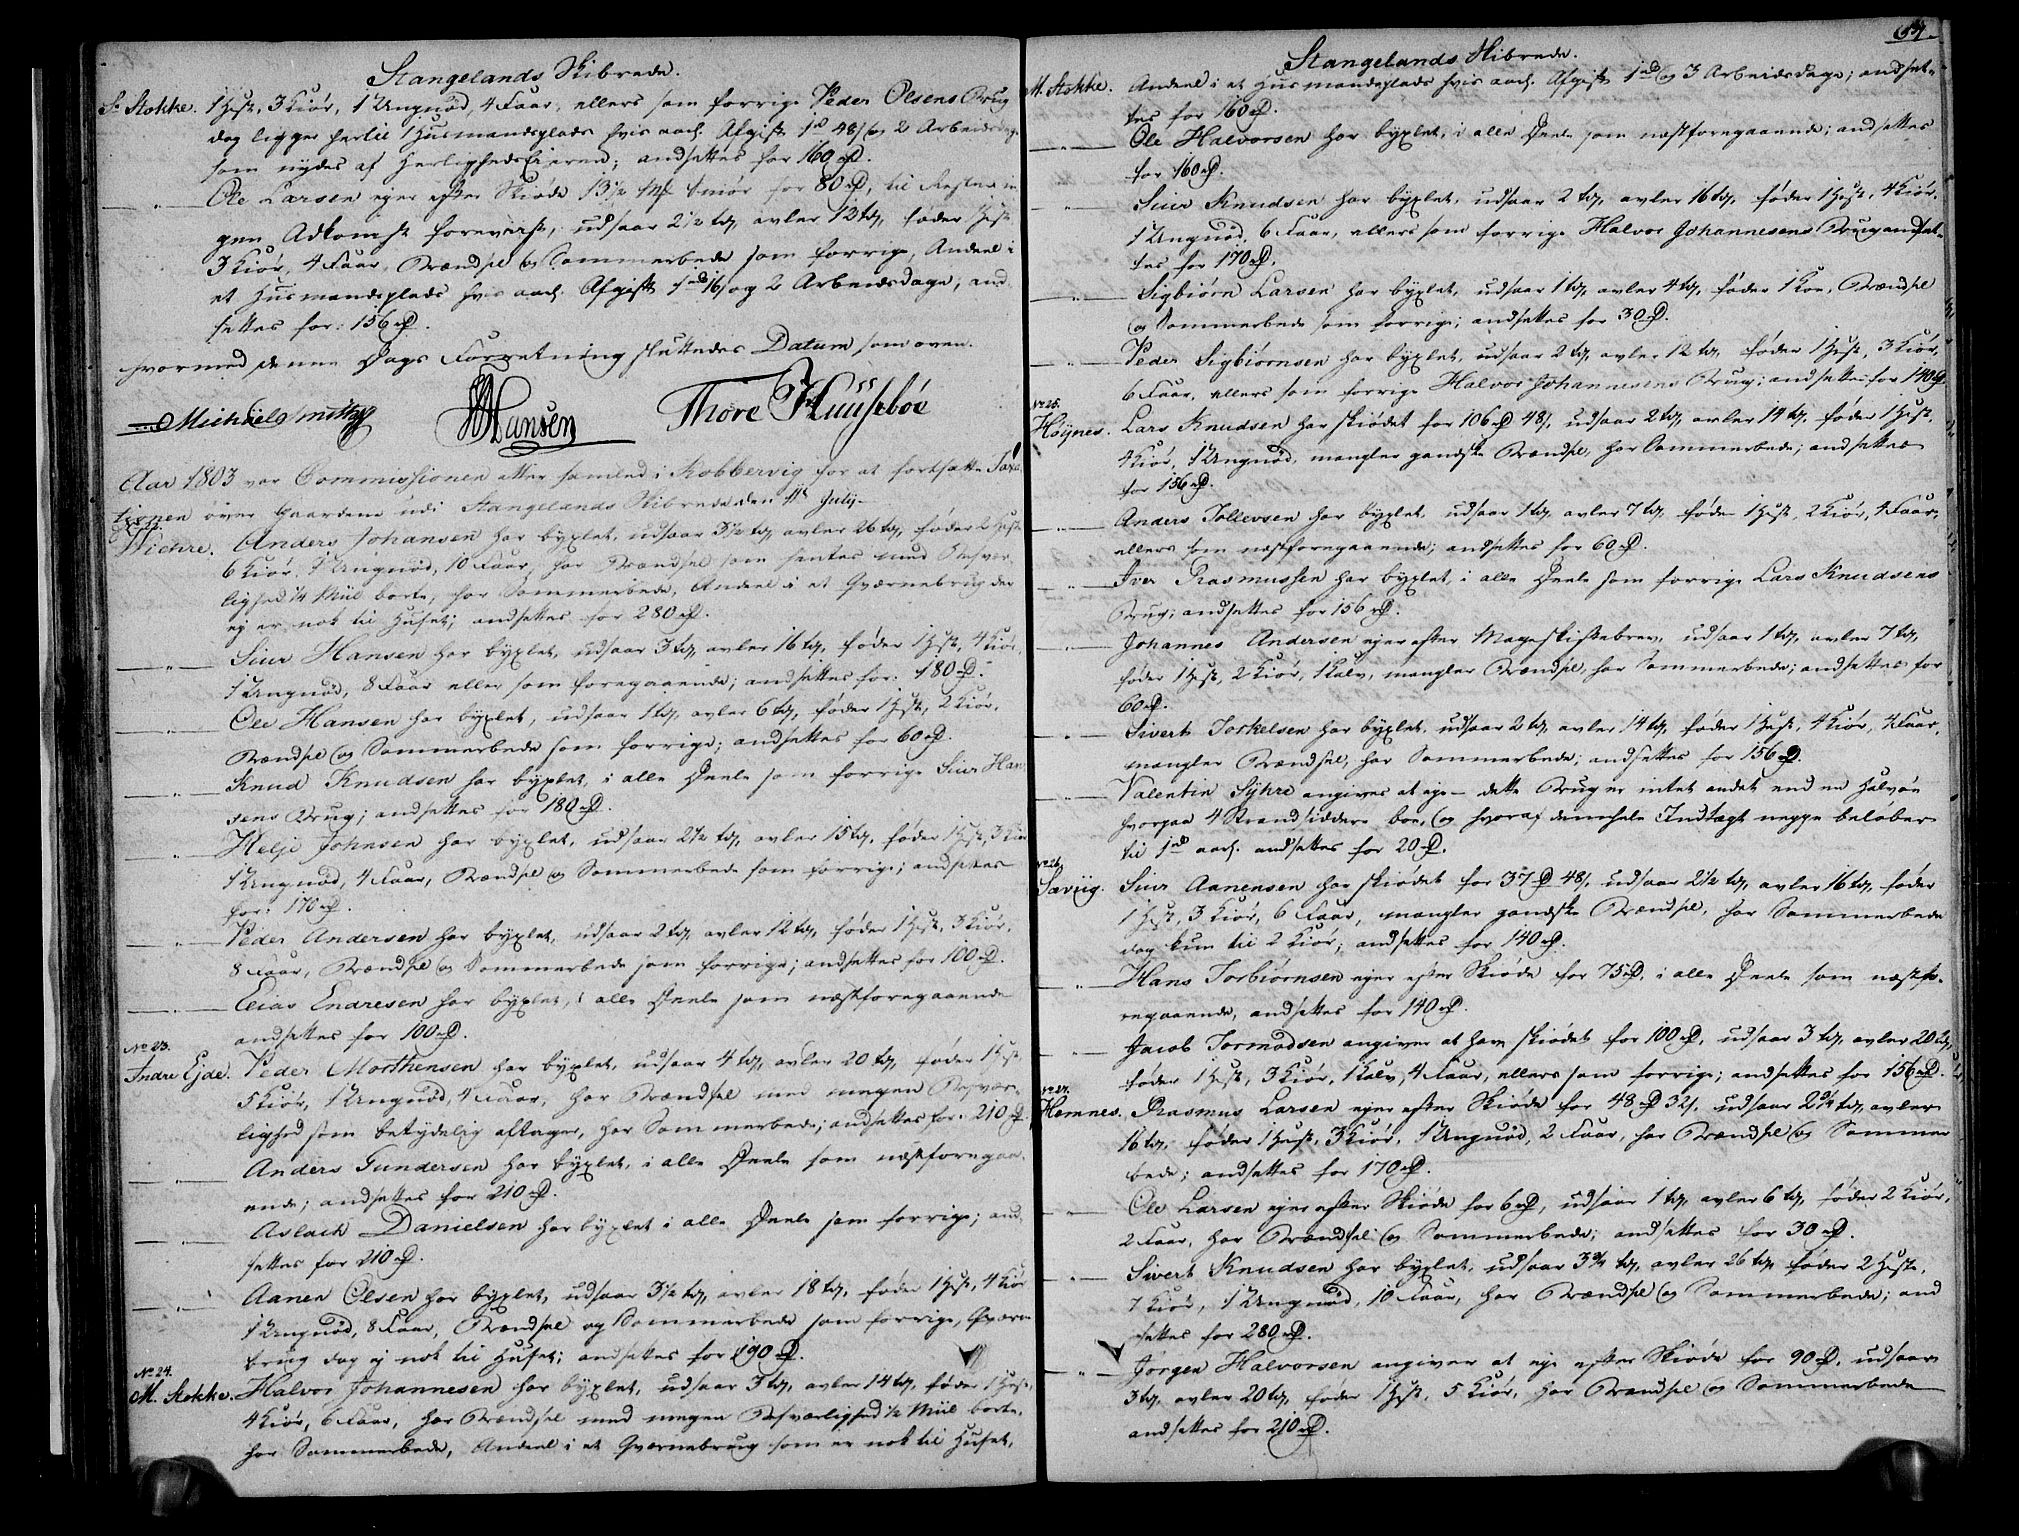 Stangelands Skibrede.
S. Stokke. 1 Hest, 3 Kiør, 1 Ungnød, 4 Faar, ellers som forrige Peder Olsens Brug,
dog ligger hertil 1 Huusmandsplads hvis aarl. Afgift 1 rd 48 s og 2 Arbeidsdage
som nydes af Herligheds Eieren; andsettes for 160 rD.
— " — Ole Larsen ejer efter Skiøde 13 1/2 Smør for 80 rD, til Resten in
gen Adkomst foreviist, udsaar 2 1/2 td, avler 12 td, føder 1 Hest
3 Kiør, 4 Faar, Brændsel og Sommerbede som forrige, Andeel i
et Huusmandsplads hvis aarl. Afgift 1 rd 16 s og 2 Arbeidsdage, and
settes for: 156 rD.
hvormed denne Dags Forretning sluttedes Datum som oven.
Michael Smith HHansen Thore Huusebøe
Aar 1803 var Commissionen atter samled i Kobbervig for at fortsætte Taxa
tionen over Gaardene udi Stangelands Skibrede den 11te July.
Wichre. Anders Johansen har byxlet, udsaar 3 1/2 td, avler 26 td, føder 2 Heste
6 Kiør, 1 Ungnød, 10 Faar, har Brændsel som hentes med Besvær
lighed 1/4 Miil borte, har Sommerbede, Andeel i et Qværnebrug der
ej er nok til Huset; andsettes for 280 rD.
— " — Siur Hansen har byxlet, udsaar 3 td, avler 16 td, føder 1 Hest, 4 Kiør,
1 Ungnød, 8 Faar ellers som foregaaende; andsettes for: 180 rD.
— " — Ole Hansen har byxlet, udsaar 1 td, avler 6 td, føder 1 Hest, 2 Kiør,
Brændsel og Sommerbede som forrige; andsettes for 60 rD.
— " — Knud Knudsen har byxlet, i alle Deele som forrige Siur Han
sens Brug; andsettes for 180 rD.
" — Helje Johnsen har byxlet, udsaar 2 1/2 td, avler 15 td, føder 1 Hest, 3 Kiør
1 Ungnød, 4 Faar, Brændsel og Sommerbede som forrige; andsettes
for: 170 rD.
— " — Peder Andersen har byxlet, udsaar 2 td, avler 12 td, føder 1 Hest, 3 Kiør,
8 Faar, Brændsel og Sommerbede som forrige; andsettes for 100 rD.
— " — Elias Endresen har byxlet, i alle Deele som næstforegaaende
andsettes for 100 rD.
No 23.
Indre Ejde. Peder Morthensen har byxlet, udsaar 4 td, avler 20 td, føder 1 Hest,
5 Kiør, 1 Ungnød, 4 Faar, har Brændsel med megen Besvær
lighed som betydelig aftager, har Sommerbede; andsettes for. 210 rD.
— " — Anders Gundersen har byxlet, i alle Deele som næstforegaa
ende; andsettes for 210 rD.
— " — Aslach Danielsen har byxlet i alle Deele som forrige; and
settes for 210 rD.
— " — Aanen Olsen har byxlet, udsaar 3 1/2 td, avler 18 td, føder 1 Hest, 4 Kiør
1 Ungnød, 8 Faar, Brændsel og Sommerbede som forrige, Qværne
brug dog ej nok til Huset; andsettes for 190 rD.
No 24.
M. Stokke. Halvor Johannesen har byxlet, udsaar 3 td, avler 14 td, føder 1 Hest,
4 Kiør, 6 Faar, har Brændsel med megen Besværlighed 1/2 Miil borte,
har Sommerbede, Andeel i et Qværnebrug som er nok til Huset,
Stangelands Skibrede.
M. Stokke. Andeel i et Huusmandsplads hvis aarl. Afgift 1 rd og 3 Arbeidsdage; andset-
tes for 160 rD.
— " — Ole Halvorsen har byxlet, i alle Deele som næstforegaaende; andsettes
for 160 rD.
" — Siur Knudsen har byxlet, udsaar 2 td, avler 16 td, føder 1 Hest, 4 Kiør,
1 Ungnød, 6 Faar, ellers som forrige Halvor Johannesens Brug andset-
tes for 170 rD.
— " — Sigbiørn Larsen har byxlet, udsaar 1 td, avler 4 td, føder 1 Koe, Brændsel
og Sommerbede som forrige; andsettes for 30 rD.
— " — Peder Sigbiørnsen har byxlet, udsaar 2 td, avler 12 td, føder 1 Hest, 3 Kiør,
6 Faar, ellers som forrige Halvor Johannesens Brug; andsettes for 140 rD.
No 25.
Høynes. Lars Knudsen har skiødet for 106 rD 48 s, udsaar 2 td, avler 14 td, føder 1 Hest,
4 Kiør, 1 Ungnød, mangler gandske Brændsel, har Sommerbede; andsettes
for 156 rD.
" — Anders Tollevsen har byxlet, udsaar 1 td, avler 7 td, føder 1 Hest, 2 Kiør, 4 Faar,
ellers som næstforegaaende; andsettes for 60 rD.
— " — Iver Rasmussen har byxlet, i alle Deele som forrige Lars Knudsens
Brug; andsettes for 156 rD.
" — Johannes Andersen ejer efter Mageskiftebrev, udsaar 1 td, avler 7 td,
føder 1 Hest, 2 Kiør, 1 Kalv, mangler Brændsel, har Sommerbede; andsettes for
60 rD.
" — Sivert Torkelsen har byxlet, udsaar 2 td, avler 14 td, føder 1 Hest, 4 Kiør, 4 Faar,
mangler Brændsel, har Sommerbede; andsettes for 156 rD.
— " — Valentin Syhre angives at eje — dette Brug er intet andet end en Halvøe
hvorpaa 4 Strandsiddere boe, og hvoraf den heele Indtægt neppe beløber
til 1 rd aarl. andsettes for 20 rD.
No 26.
Sæviig. Siur Aanensen har skiødet for 37 rD 48 s, udsaar 2 1/2 td, avler 16 td, føder
1 Hest, 3 Kiør, 6 Faar, mangler gandske Brændsel, har Sommerbede
dog kun til 2 Kiør; andsettes for 140 rD.
" — Hans Torbiørnsen ejer efter Skiøde for 75 rD, i alle Deele som næstfo-
regaaende, andsettes for 140 rD.
" — Jacob Tormodsen angiver at have skiødet for 100 rD, udsaar 3 td, avler 20 td,
føder 1 Hest, 3 Kiør, 1 Kalv, 4 Faar, ellers som forrige; andsettes for 156 rD.
No 27.
Hemnes. Rasmus Larsen ejer efter Skiøde for 48 rD 32 s, udsaar 2 3/4 td, avler
16 td, føder 1 Hest, 3 Kiør, 1 Ungnød, 2 Faar, har Brændsel og Sommer
bede; andsettes for 170 rD.
" — Ole Larsen ejer efter Skiøde for 6 rD, udsaar 1 td, avler 6 td, føder 2 Kiør,
2 Faar, har Brændsel og Sommerbede; andsettes for 30 rD.
" — Sivert Knudsen har byxlet, udsaar 3 3/4 td, avler 26 td, føder 2 Heste,
7 Kiør, 1 Ungnød, 10 Faar, har Brændsel og Sommerbede; and
settes for 280 rD.
" — Jørgen Halvorsen angiver at eje efter Skiøde for 90 rD, udsaar
3 td, avler 20 td, føder 1 Hest, 5 Kiør, har Brændsel og Sommerbede
andsettes for 210 rD.